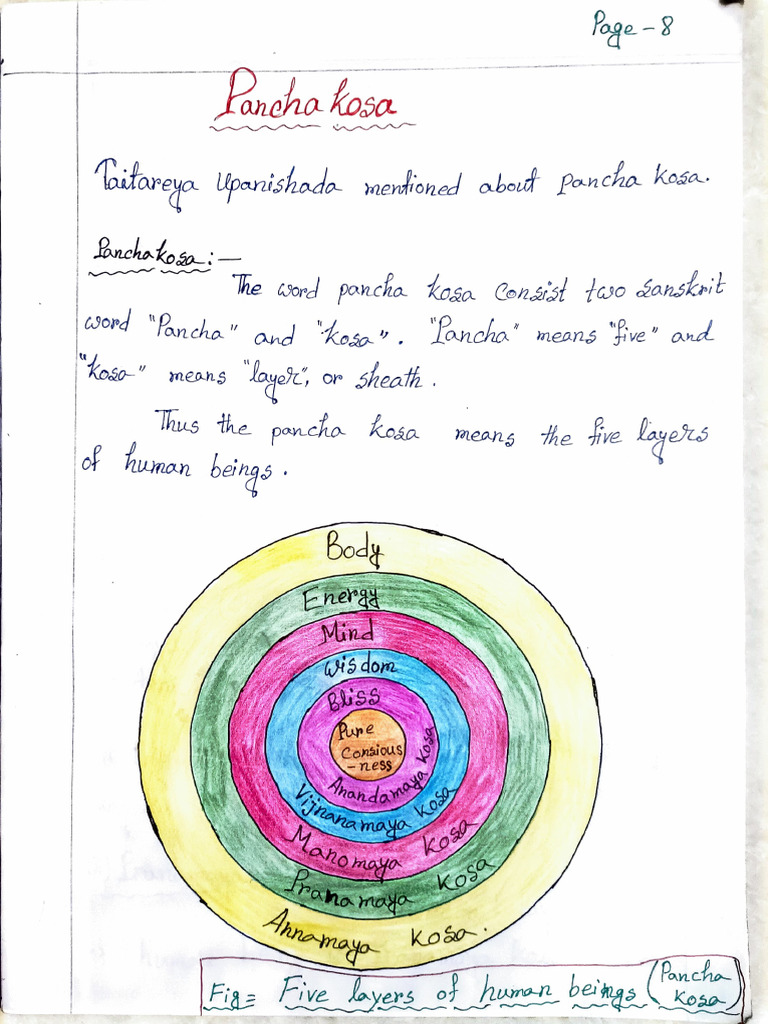 Page - 8
Pancha kosa
Taitareya Upanishada mentioned about pancha kosa.
Pancha kosa :-
The word pancha kosa consist two sanskrit
word "Pancha" and "kosa". "Pancha" means "five" and
"kosa" means "layer", or sheath.
Thus the pancha kosa means the five layers
of human beings.
Body
Energy
Mind
Wisdom
Bliss
Pure
Consious
-ness
Anandamaya kosa
Vijnanamaya kosa
Manomaya kosa
Pranamaya kosa
Annamaya kosa.
Fig= Five layers of human beings (Pancha
kosa)